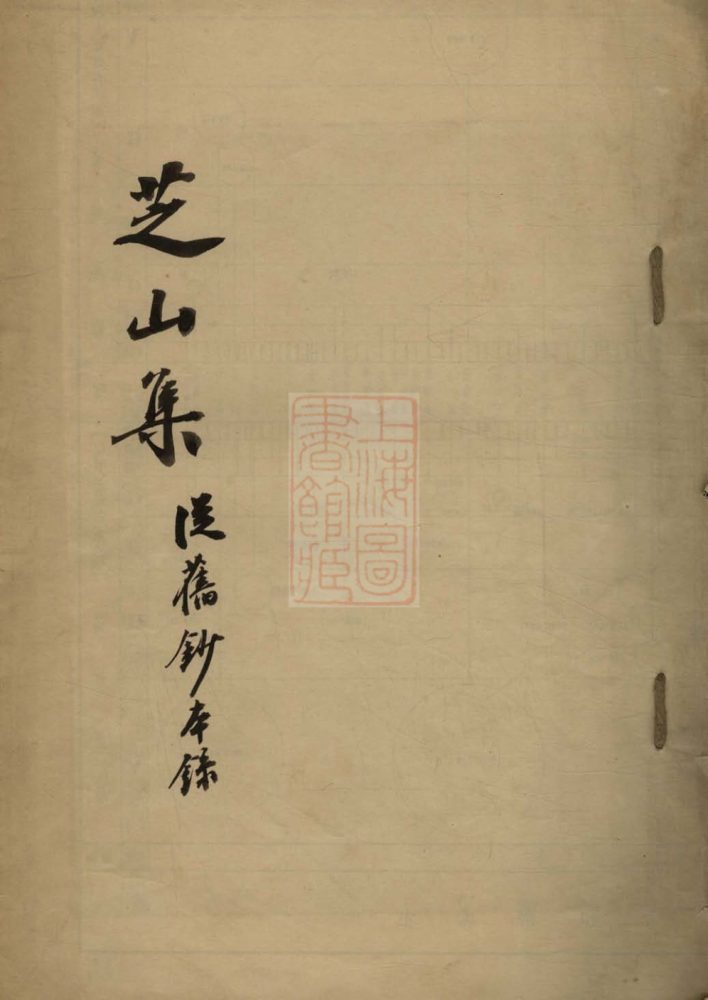 芝山集
從舊鈔本録
上海圖
書館藏